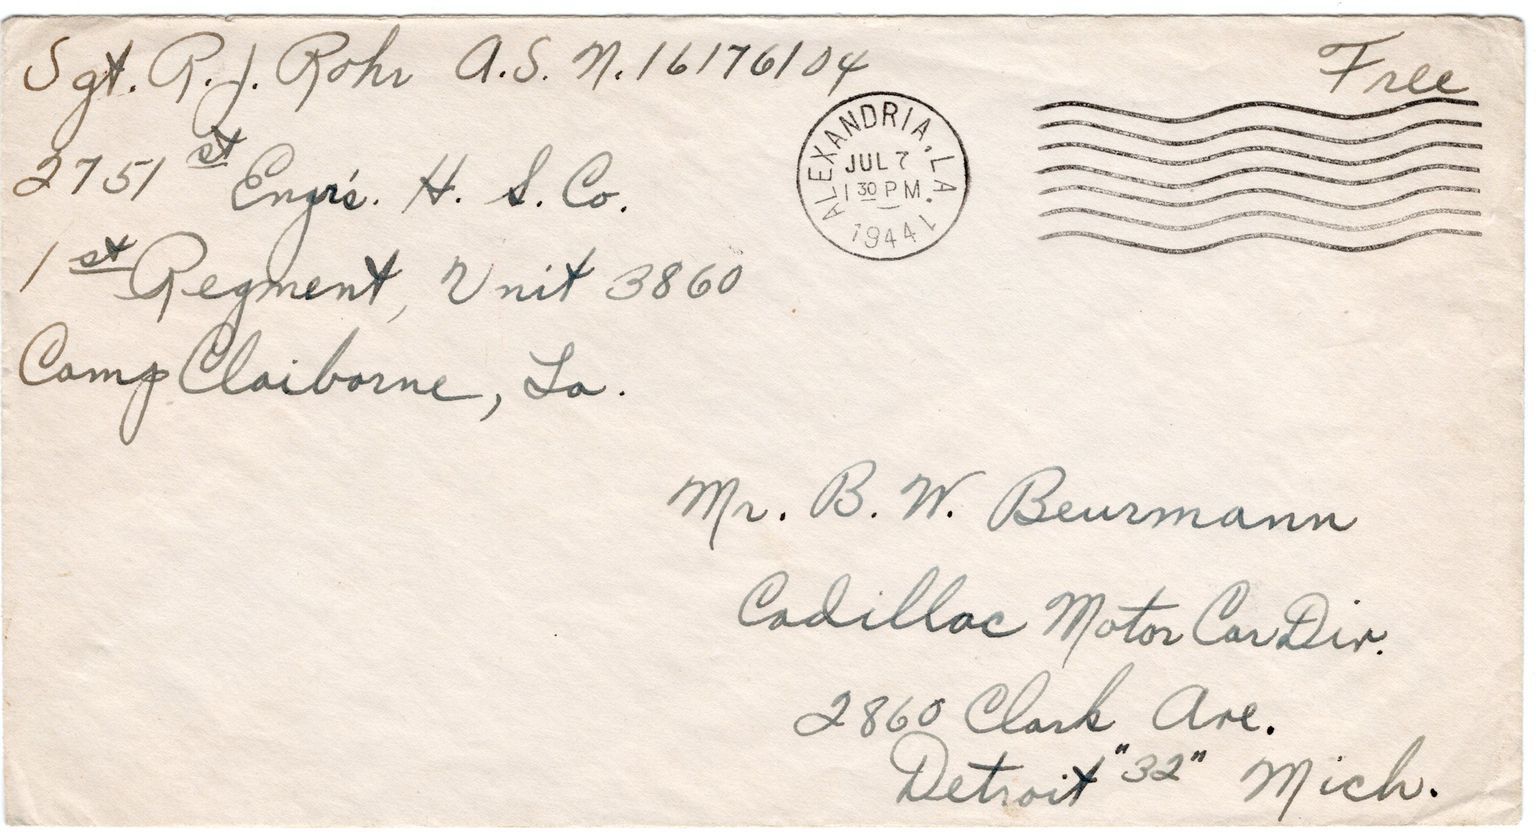 Sgt. R. J. Rohr A.S.N. 16176104
2751st Engr's. H. S. Co.
1st Regment, Unit 3860
Camp Claiborne, La.
Free
ALEXANDRIA, LA.
JUL 7
1 30 PM
1944
1
Mr. B. W. Beurmann
Cadillac Motor Car Div.
2860 Clark Ave.
Detroit "32" Mich.